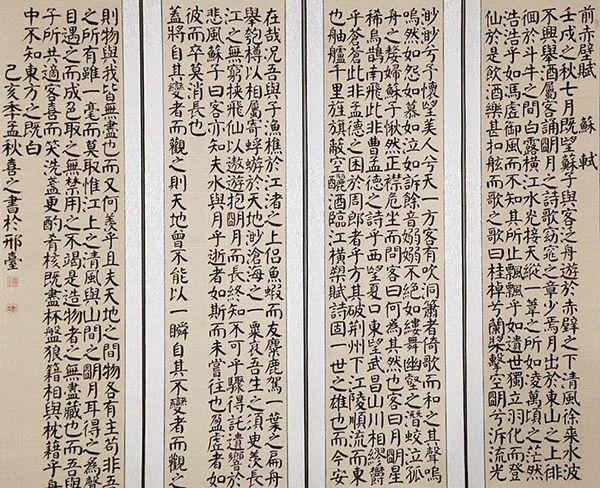 前赤壁賦 蘇軾
壬戌之秋七月既望蘇子與客泛舟遊於赤壁之下清風徐來水波
不興舉酒屬客誦朙月之詩歌窈窕之章少焉月出於東山之上徘
徊於斗牛之間白露橫江水光接天縱一葦之所如凌萬頃之茫然
浩浩乎如馮虛御風而不知其所止飄飄乎如遺世獨立羽化而登
仙於是飲酒樂甚扣舷而歌之歌曰桂棹兮蘭槳擊空朙兮泝流光
渺渺兮予懷望美人兮天一方客有吹洞簫者倚歌而和之其聲嗚
嗚然如怨如慕如泣如訴餘音嫋嫋不絕如縷舞幽壑之潛蛟泣孤
舟之嫠婦蘇子愀然正襟危坐而問客曰何為其然也客曰月朙星
稀烏鵲南飛此非曹孟德之詩乎西望夏口東望武昌山川相繆鬱
乎蒼蒼此非孟德之困於周郎者乎方其破荊州下江陵順流而東
也舳艫千里旌旗蔽空釃酒臨江橫槊賦詩固一世之雄也而今安
在哉況吾與子漁樵於江渚之上侶魚蝦而友麋鹿駕一葉之扁舟
舉匏樽以相屬寄蜉蝣於天地渺滄海之一粟哀吾生之須臾羨長
江之無窮挾飛仙以遨遊抱朙月而長終知不可乎驟得託遺響於
悲風蘇子曰客亦知夫水與月乎逝者如斯而未嘗往也盈虛者如
彼而卒莫消長也
蓋將自其變者而觀之則天地曾不能以一瞬自其不變者而觀之
則物與我皆無盡也而又何羨乎且夫天地之間物各有主苟非吾
之所有雖一毫而莫取惟江上之清風與山間之朙月耳得之為聲
目遇之而成色取之無禁用之不竭是造物者之無盡藏也而吾與
子所共適客喜而笑洗盞更酌肴核既盡杯盤狼籍相與枕藉乎舟
中不知東方之既白
己亥季孟秋喜之書於邢臺